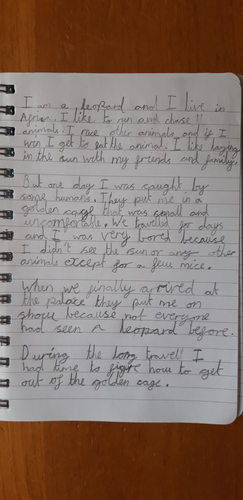 I am a leopard and I live in
Africa. I like to run and chase
animals. I race other animals and if I
win I get to eat the animal. I like laying
in the sun with my friends and family.
But one day I was caught by
some humans. They put me in a
golden cage that was small and
uncomfortable. We travelled for days
and I was very bored because
I didn't see the sun or any other
animals except for a few mice.
When we finally arrived at
the palace they put me on
show because not everyone
had seen a leopard before.
During the long travell I
had time to figre how to get
out of the golden cage.